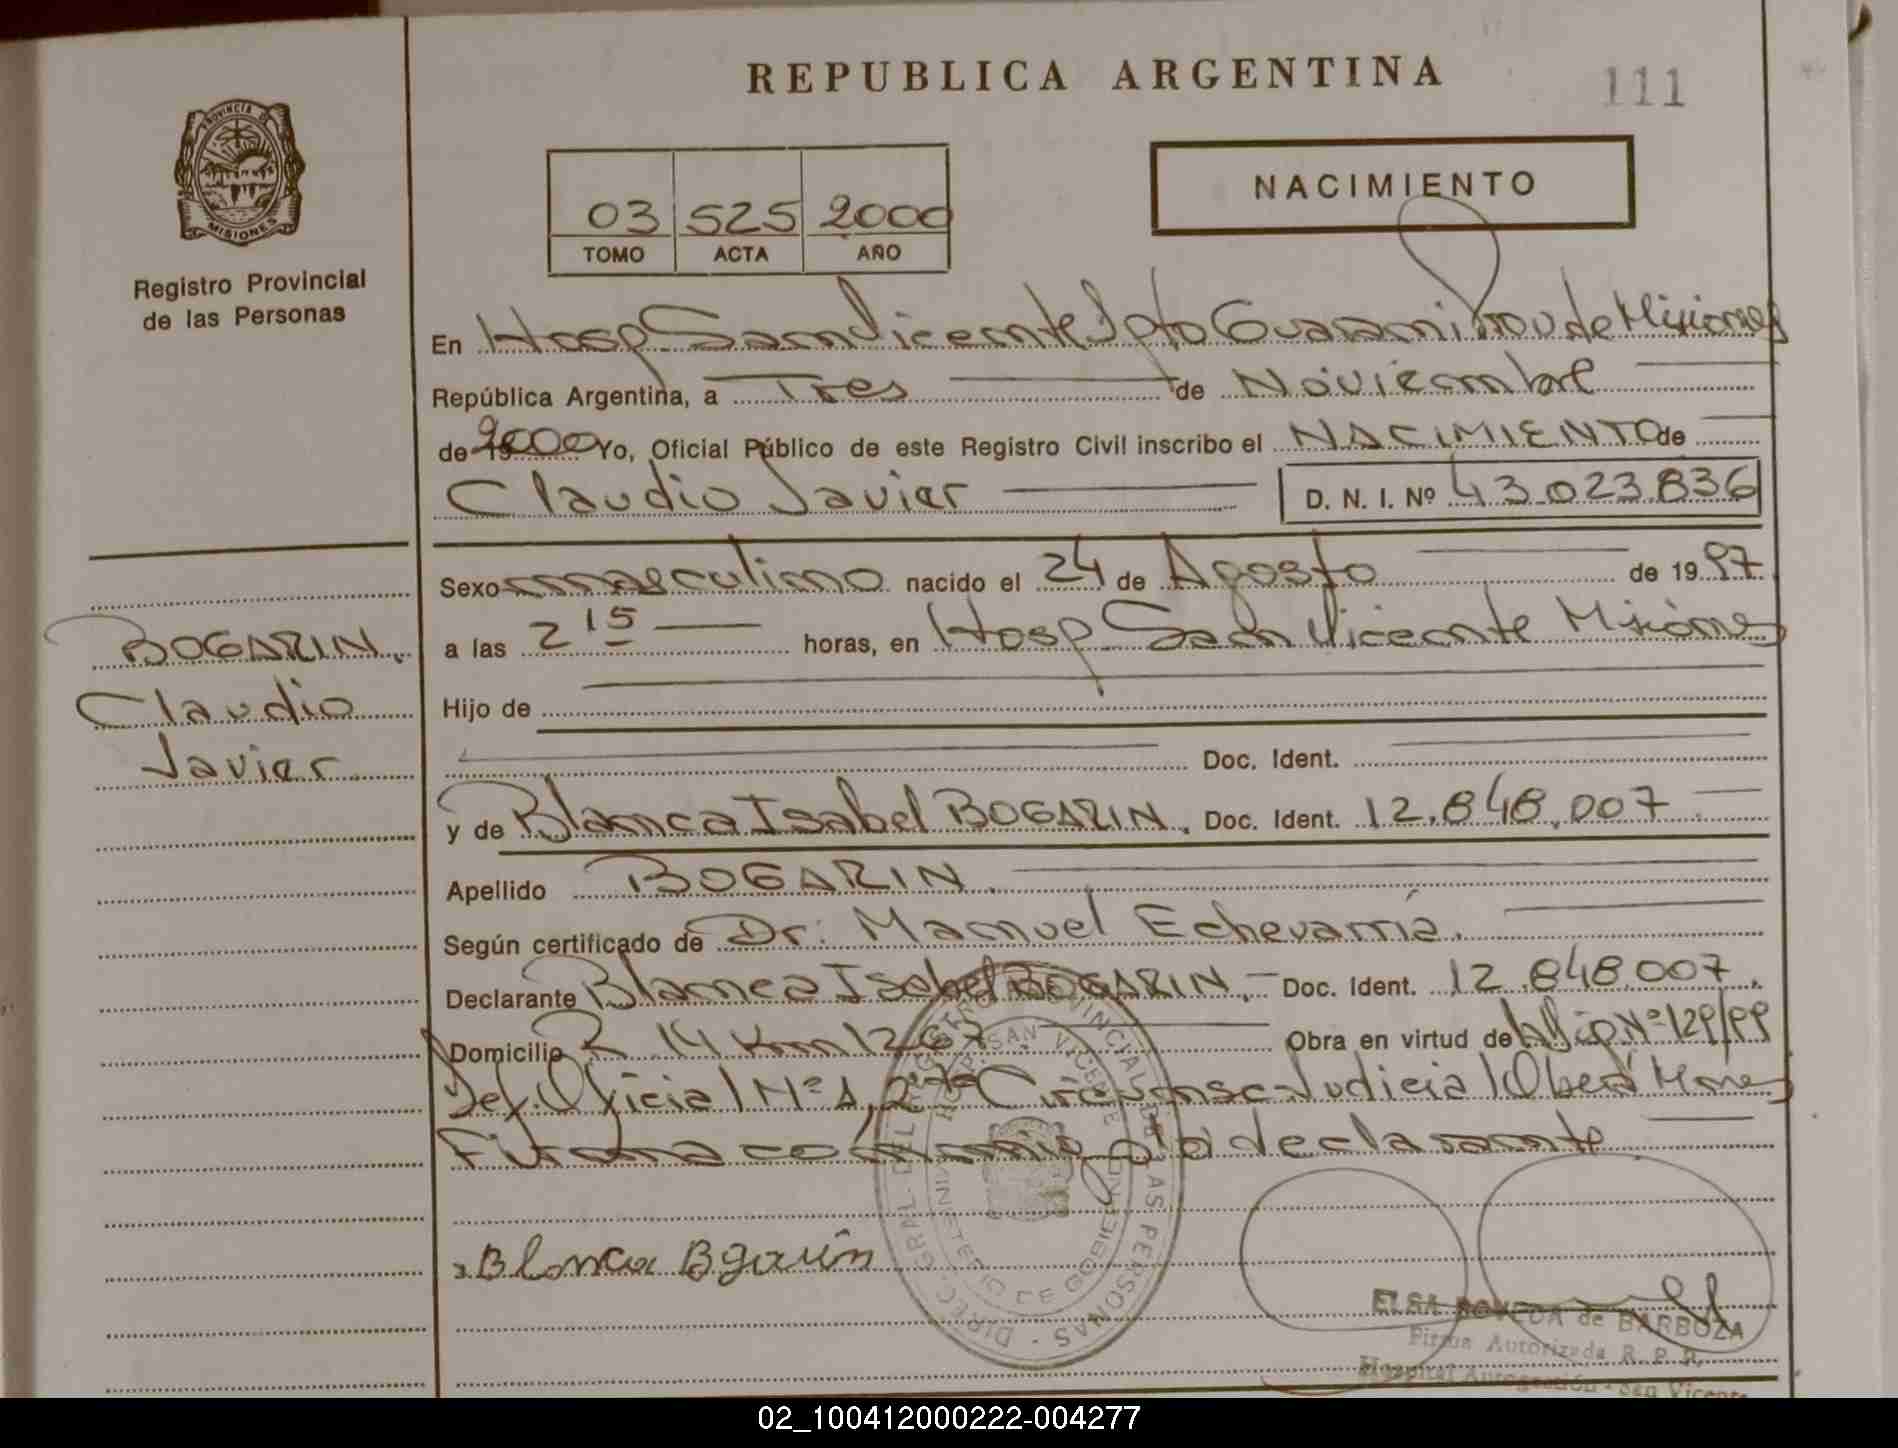 REPUBLICA ARGENTINA
111
PROVINCIA DE MISIONES
Registro Provincial
de las Personas
03 525 2000
TOMO ACTA AÑO
NACIMIENTO
En Hosp San Vicente Dpto Guarani Prov de Misiones
República Argentina, a Tres de Noviembre
de 2000 Yo, Oficial Público de este Registro Civil inscribo el NACIMIENTO de
Claudio Javier D. N. I. Nº 43.023.836
Sexo masculino nacido el 24 de Agosto de 1997
a las 2 15 horas, en Hosp San Vicente Misiones
Hijo de
Doc. Ident.
y de Blanca Isabel BOGARIN. Doc. Ident. 12.848.007
Apellido BOGARIN.
Según certificado de Dr. Manuel Echevarría.
Declarante Blanca Isabel BOGARIN. Doc. Ident. 12.848.007.
Domicilio R 14 Km 1267 Obra en virtud de Nº 129/99
Def. Oficial Nº 1, 2da Circunsc. Judicial Oberá Mnes
Firma conmigo la declarante
BOGARIN.
Claudio
Javier
Blanca Bgarín
DIREC. GRAL. DEL REGISTRO PROVINCIAL DE LAS PERSONAS
HOSP. SAN VICENTE
ELSA BOVEDA de BARBOZA
Firma Autorizada R. P. P.
Hospital Autogestión - San Vicente
02_100412000222-004277